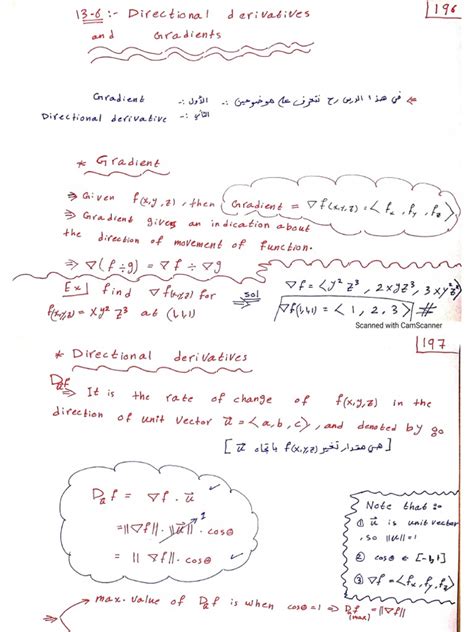 13-6 :- Directional derivatives
and Gradients
196
في هذا الدرس رح نتعرف على موضوعين :- الأول :- Gradient
الثاني :- Directional derivative
* Gradient
⇒ Given f(x,y,z), then Gradient = ∇f(x,y,z) = <fx, fy, fz>
⇒ Gradient gives an indication about
the direction of movement of function.
⇒ ∇(f ÷ g) = ∇f ÷ ∇g
Ex] find ∇f(x,y,z) for
f(x,y,z) = xy² z³ at (1,1,1)
⇒ sol
∇f = <y² z³, 2xyz³, 3xy²z²>
∇f(1,1,1) = <1, 2, 3> #
Scanned with CamScanner
197
* Directional derivatives
Duf
⇒ It is the rate of change of f(x,y,z) in the
direction of unit vector u = <a,b,c>, and denoted by
[هي مقدار تغير f(x,y,z) باتجاه u]
Duf = ∇f . u
= ||∇f|| . ||u|| . cosθ
1
= || ∇f|| . cosθ
Note that :-
① u is unit vector
, so ||u|| = 1
② cosθ ∈ [-1,1]
③ ∇f = <fx, fy, fz>
⇒ max. value of Duf is when cosθ = 1 ⇒ Duf (max) = ||∇f||